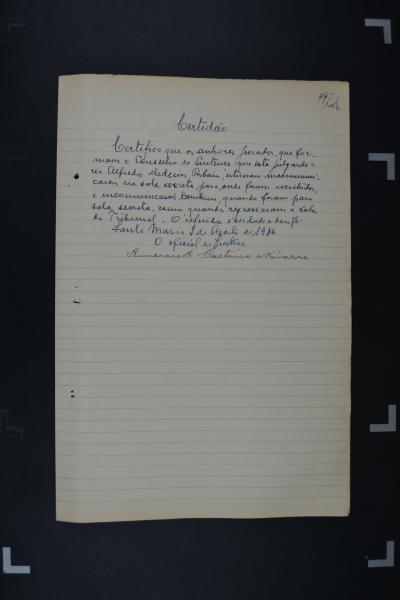 Certidão
Certifico que os senhores Jurados, que for-
mam o Conselho de Sentença que está julgando o
réu Alfredo Ribas, estiveram incommuni-
caveis na sala secreta, para onde foram recolhidos,
e incommunicaveis tambem, quando foram para
sala secreta, como quando regressaram a sala
do Tribunal. O referido é verdade e dou fé.
Santa Maria, de Agosto de
O oficial de Justiça
Caetano Navarro